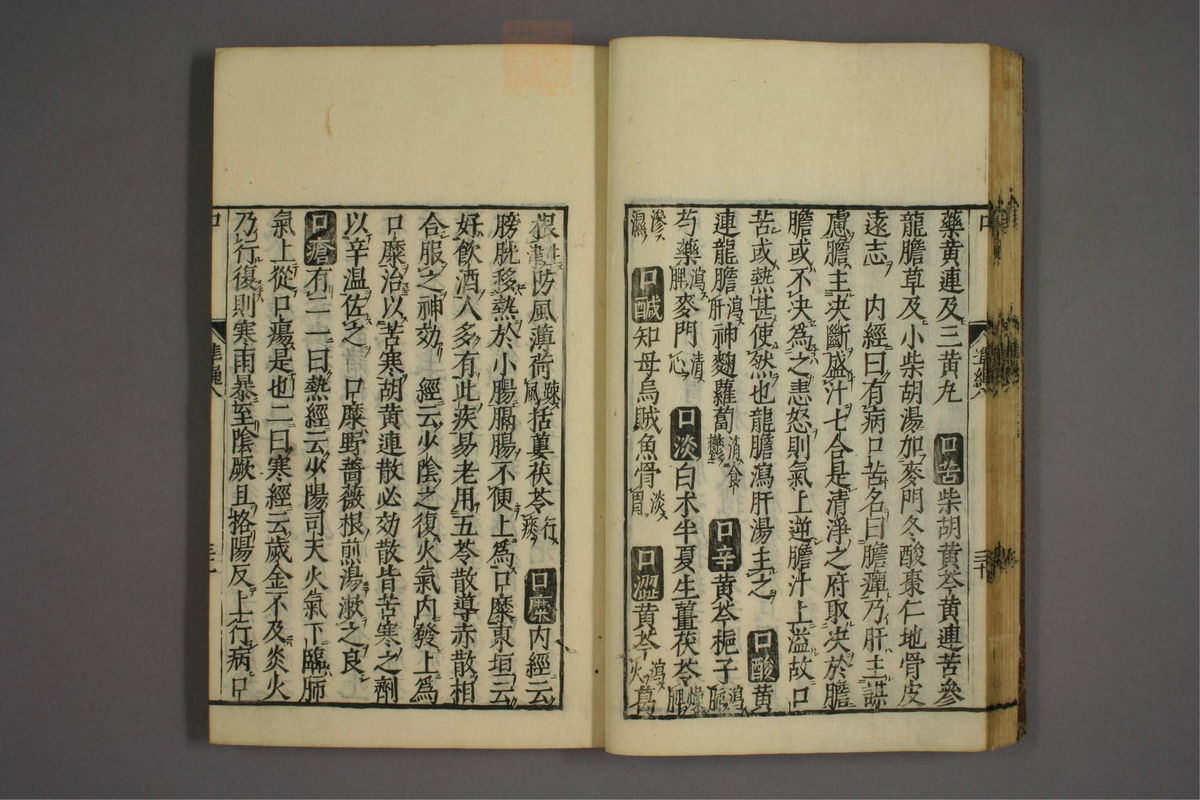 藥黃連及三黃丸 口苦柴胡黃芩黃連苦參
龍膽草及小柴胡湯加麥門冬酸棗仁地骨皮
遠志 内經曰有病口苦名曰膽癉乃肝主謀
慮膽主決斷盛汁七合是清淨之府取決於膽
膽或不決為之恚怒則氣上逆膽汁上溢故口
苦或熱甚使然也龍膽瀉肝湯主之 口酸黃
連龍膽瀉肝神麯蘿蔔消食鬱 口辛黃芩梔子瀉肺
芍藥瀉脾麥門清心 口淡白朮半夏生薑茯苓燥脾
滲濕 口鹹知母烏賊魚骨淡胃 口澀黃芩瀉火葛
根防風薄荷疎風括蔞茯苓行痰 口糜内經云
膀胱移熱於小腸膈腸不便上為口糜東垣云
好飲酒人多有此疾易老用五苓散導赤散相
合服之神効 經云少陰之復火氣内發上為
口糜治以苦寒胡黃連散必効散皆苦寒之劑
以辛温佐之 口糜野薔薇根煎湯漱之良
口瘡有二一曰熱經云少陽司天火氣下臨肺
氣上從口瘍是也二曰寒經云歲金不及炎火
乃行復則寒雨暴至陰厥且格陽反上行病口